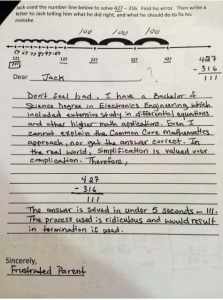 Jack used the number line below to solve 427 - 316. Find his error. Then write a
letter to Jack telling him what he did right, and what he should do to fix his
mistake.
100 100 100
127 227 327 427
427
- 316
111
Dear Jack
Don't feel bad. I have a Bachelor of
Science Degree in Electronics Engineering which
included extensive study in differential equations
and other higher math applications. Even I
cannot explain the Common Core mathematics
approach, nor get the answer correct. In
the real world, simplification is valued over
complication. Therefore,
427
- 316
111
The answer is solved in under 5 seconds - 111.
The process used is ridiculous and would result
in termination if used.
Sincerely,
Frustrated Parent